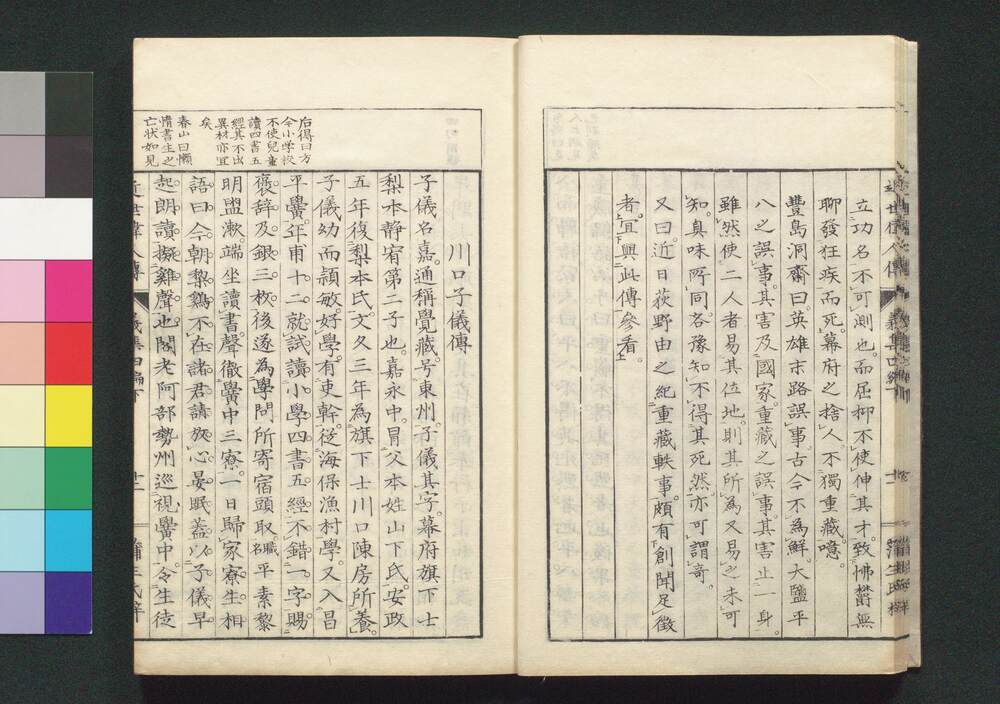 立功名不可測也而屈抑不使伸其才致怫欝無
聊發狂疾而死幕府之捨人不獨重藏噫
豐島洞齋曰英雄末路誤事古今不為鮮大鹽平
八之誤事其害及國家重藏之誤事其害止一身
雖然使二人者易其位地則其所為又易之未可
知真味所同咨豫知不得其死然亦可謂奇
又曰近日荻野由之紀重藏軼事頗有創聞足徵
者宜與此傳參看
川口子儀傳
子儀名嘉通稱覺藏号東州子儀其字幕府旗下士
梨本静宥第二子也嘉永中冒父本姓山下氏安政
五年復梨本氏文久三年為旗下士川口陳房所養
子儀幼而頴敏好學有吏幹從海保漁村學又入昌
平黌年甫十二就試讀小學四書五經不錯一字賜
褒辞及銀三枚後遂為學問所寄宿頭取職名平素黎
明盥漱端坐讀書聲徹黌中三寮一日歸家寮生相
語曰今朝黎鷄不在諸君請放心晏眠葢以子儀早
起朗讀擬雞聲也閣老阿部勢州巡視黌中令生徒
后得曰方
今小學校
不使兒童
讀四書五
經其不出
異材亦宜
矣
春山曰懶
惰書生之
亡状如見
近世偉人傳
義集四編下
十二
蒲生氏梓